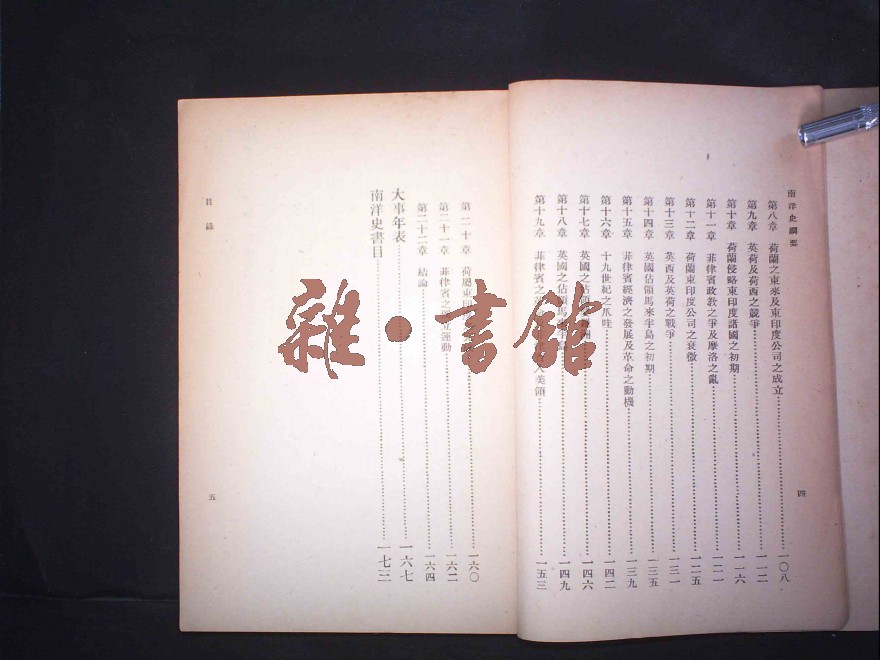 南洋史綱要
第八章 荷蘭之東來及東印度公司之成立 一〇八
第九章 英荷及荷西之競爭 一一二
第十章 荷蘭侵略東印度諸國之初期 一一六
第十一章 菲律賓政敎之爭及摩洛之亂 一二一
第十二章 荷蘭東印度公司之衰微 一二五
第十三章 英西及英荷之戰爭 一三一
第十四章 英國佔領馬來半島之初期 一三五
第十五章 菲律賓經濟之發展及革命之動機 一三九
第十六章 十九世紀之爪哇 一四二
第十七章 英國之佔 一四六
第十八章 英國之佔領馬 一四九
第十九章 菲律賓之 入美領 一五三
四
第二十章 荷屬東印 一六〇
第二十一章 菲律賓之 立運動 一六二
第二十二章 結論 一六四
大事年表 一六七
南洋史書目 一七三
目錄
五
雜·書館